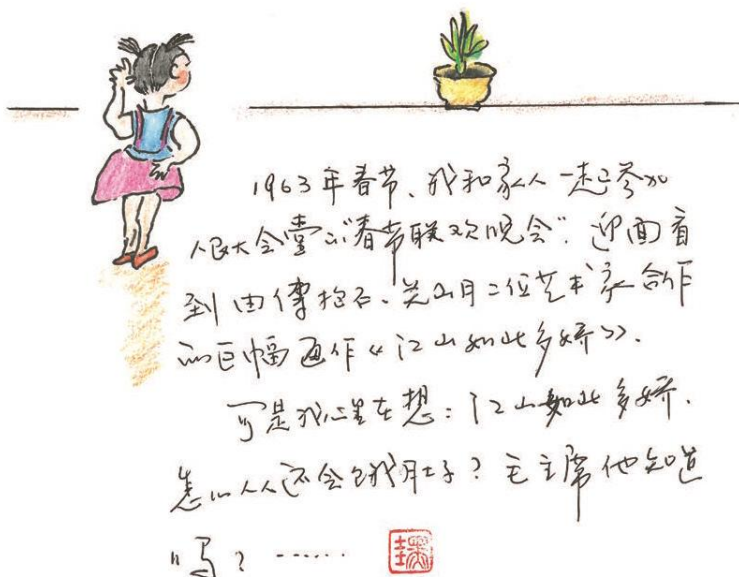 1963年春节、我和家人一起参加
人民大会堂的"春节联欢晚会". 迎面看
到由傅抱石、关山月二位艺术家合作
的巨幅画作《江山如此多娇》.
可是我心里在想:江山如此多娇.
怎么人人还会饿肚子?毛主席他知道
吗? ……